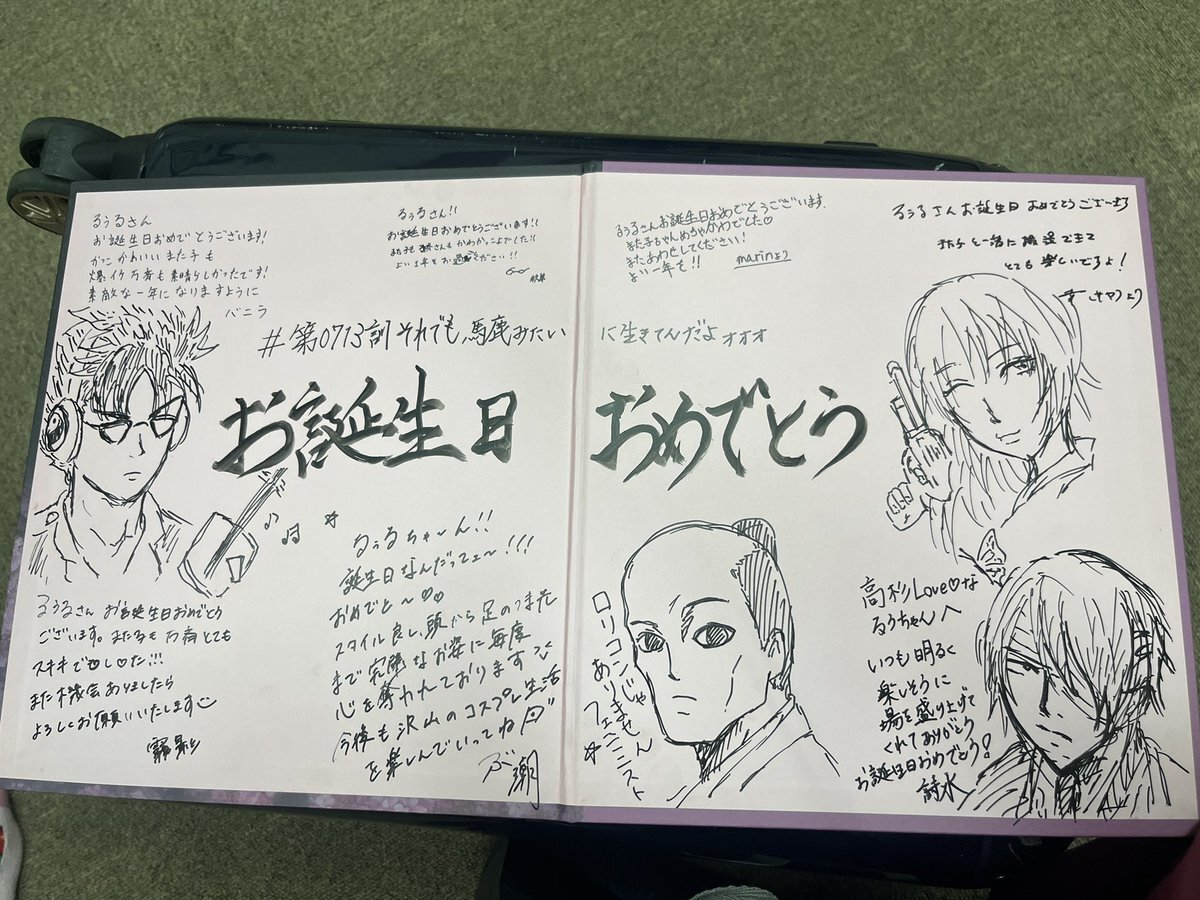 るぅるさん
お誕生日おめでとうございます!
かっこかわいいまた子も
爆イケ万斉も素晴らしかったです!
素敵な一年になりますように
バニラ
るぅるさん!!
お誕生日おめでとうございます!!
さんもかわかっこよでした!!
よい1年をお過ごしください!!
るぅるさんお誕生日おめでとうございます。
また子ちゃんめちゃかわでした♡
またあわせしてください!
よい一年を!! marinより
るぅるさんお誕生日おめでとうございます
また子と一緒に撮影できて
とても楽しいですよ!
より
#第0713訓それでも、馬鹿みたい
に生きてんだよォォォ
お誕生日
おめでとう
るぅるさんお誕生日おめでとう
ございます。また子も万斉とても
ステキで♡し♡た!!!
また機会ありましたら
よろしくお願いいたします
るぅるちゃ〜ん!!
誕生日なんだってェ〜!!!
おめでと〜♡♡
スタイル良し、頭から足のつま先
まで完璧なお姿に毎度
心を奪われております
今後も沢山のコスプレ生活
を楽しんでいってね
ロリコンじゃ
ありません
フェミニスト
高杉Love♡な
るぅちゃんへ
いつも明るく
楽しそうに
場を盛り上げて
くれてありがとう
お誕生日おめでとう!
詩水